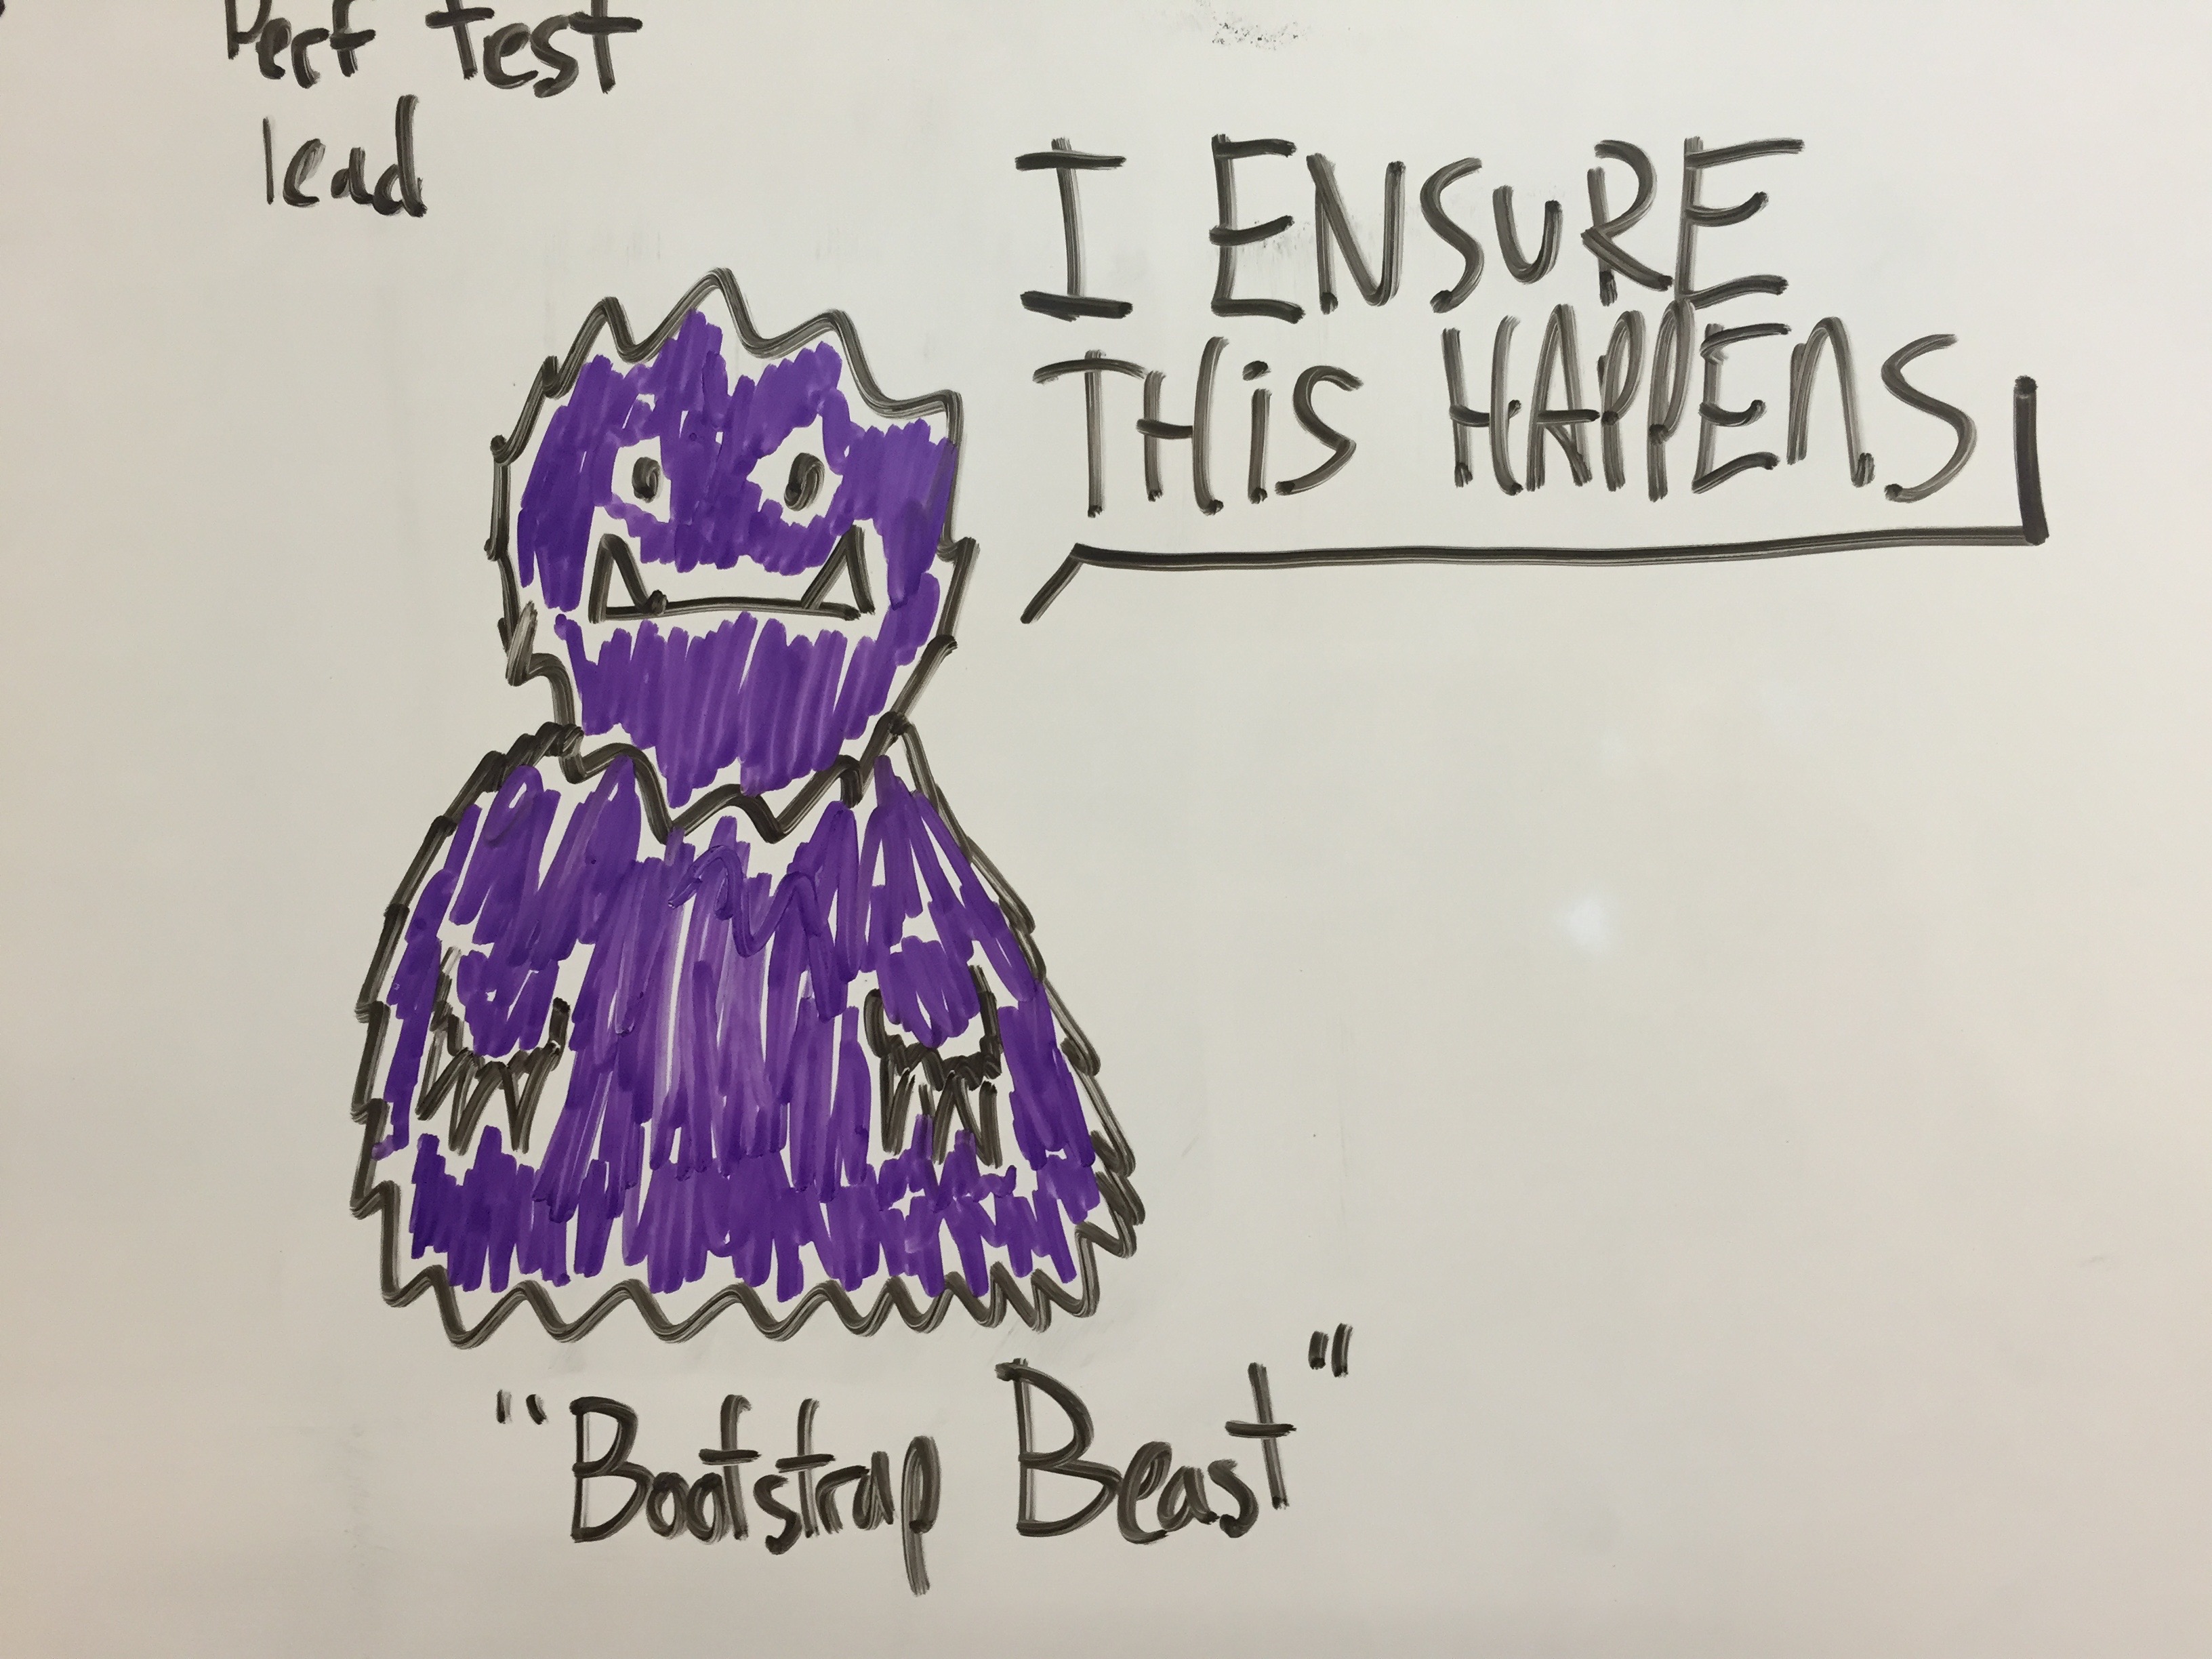 Perf test
lead
I ENSURE
THiS HAPPENS
"Bootstrap Beast"